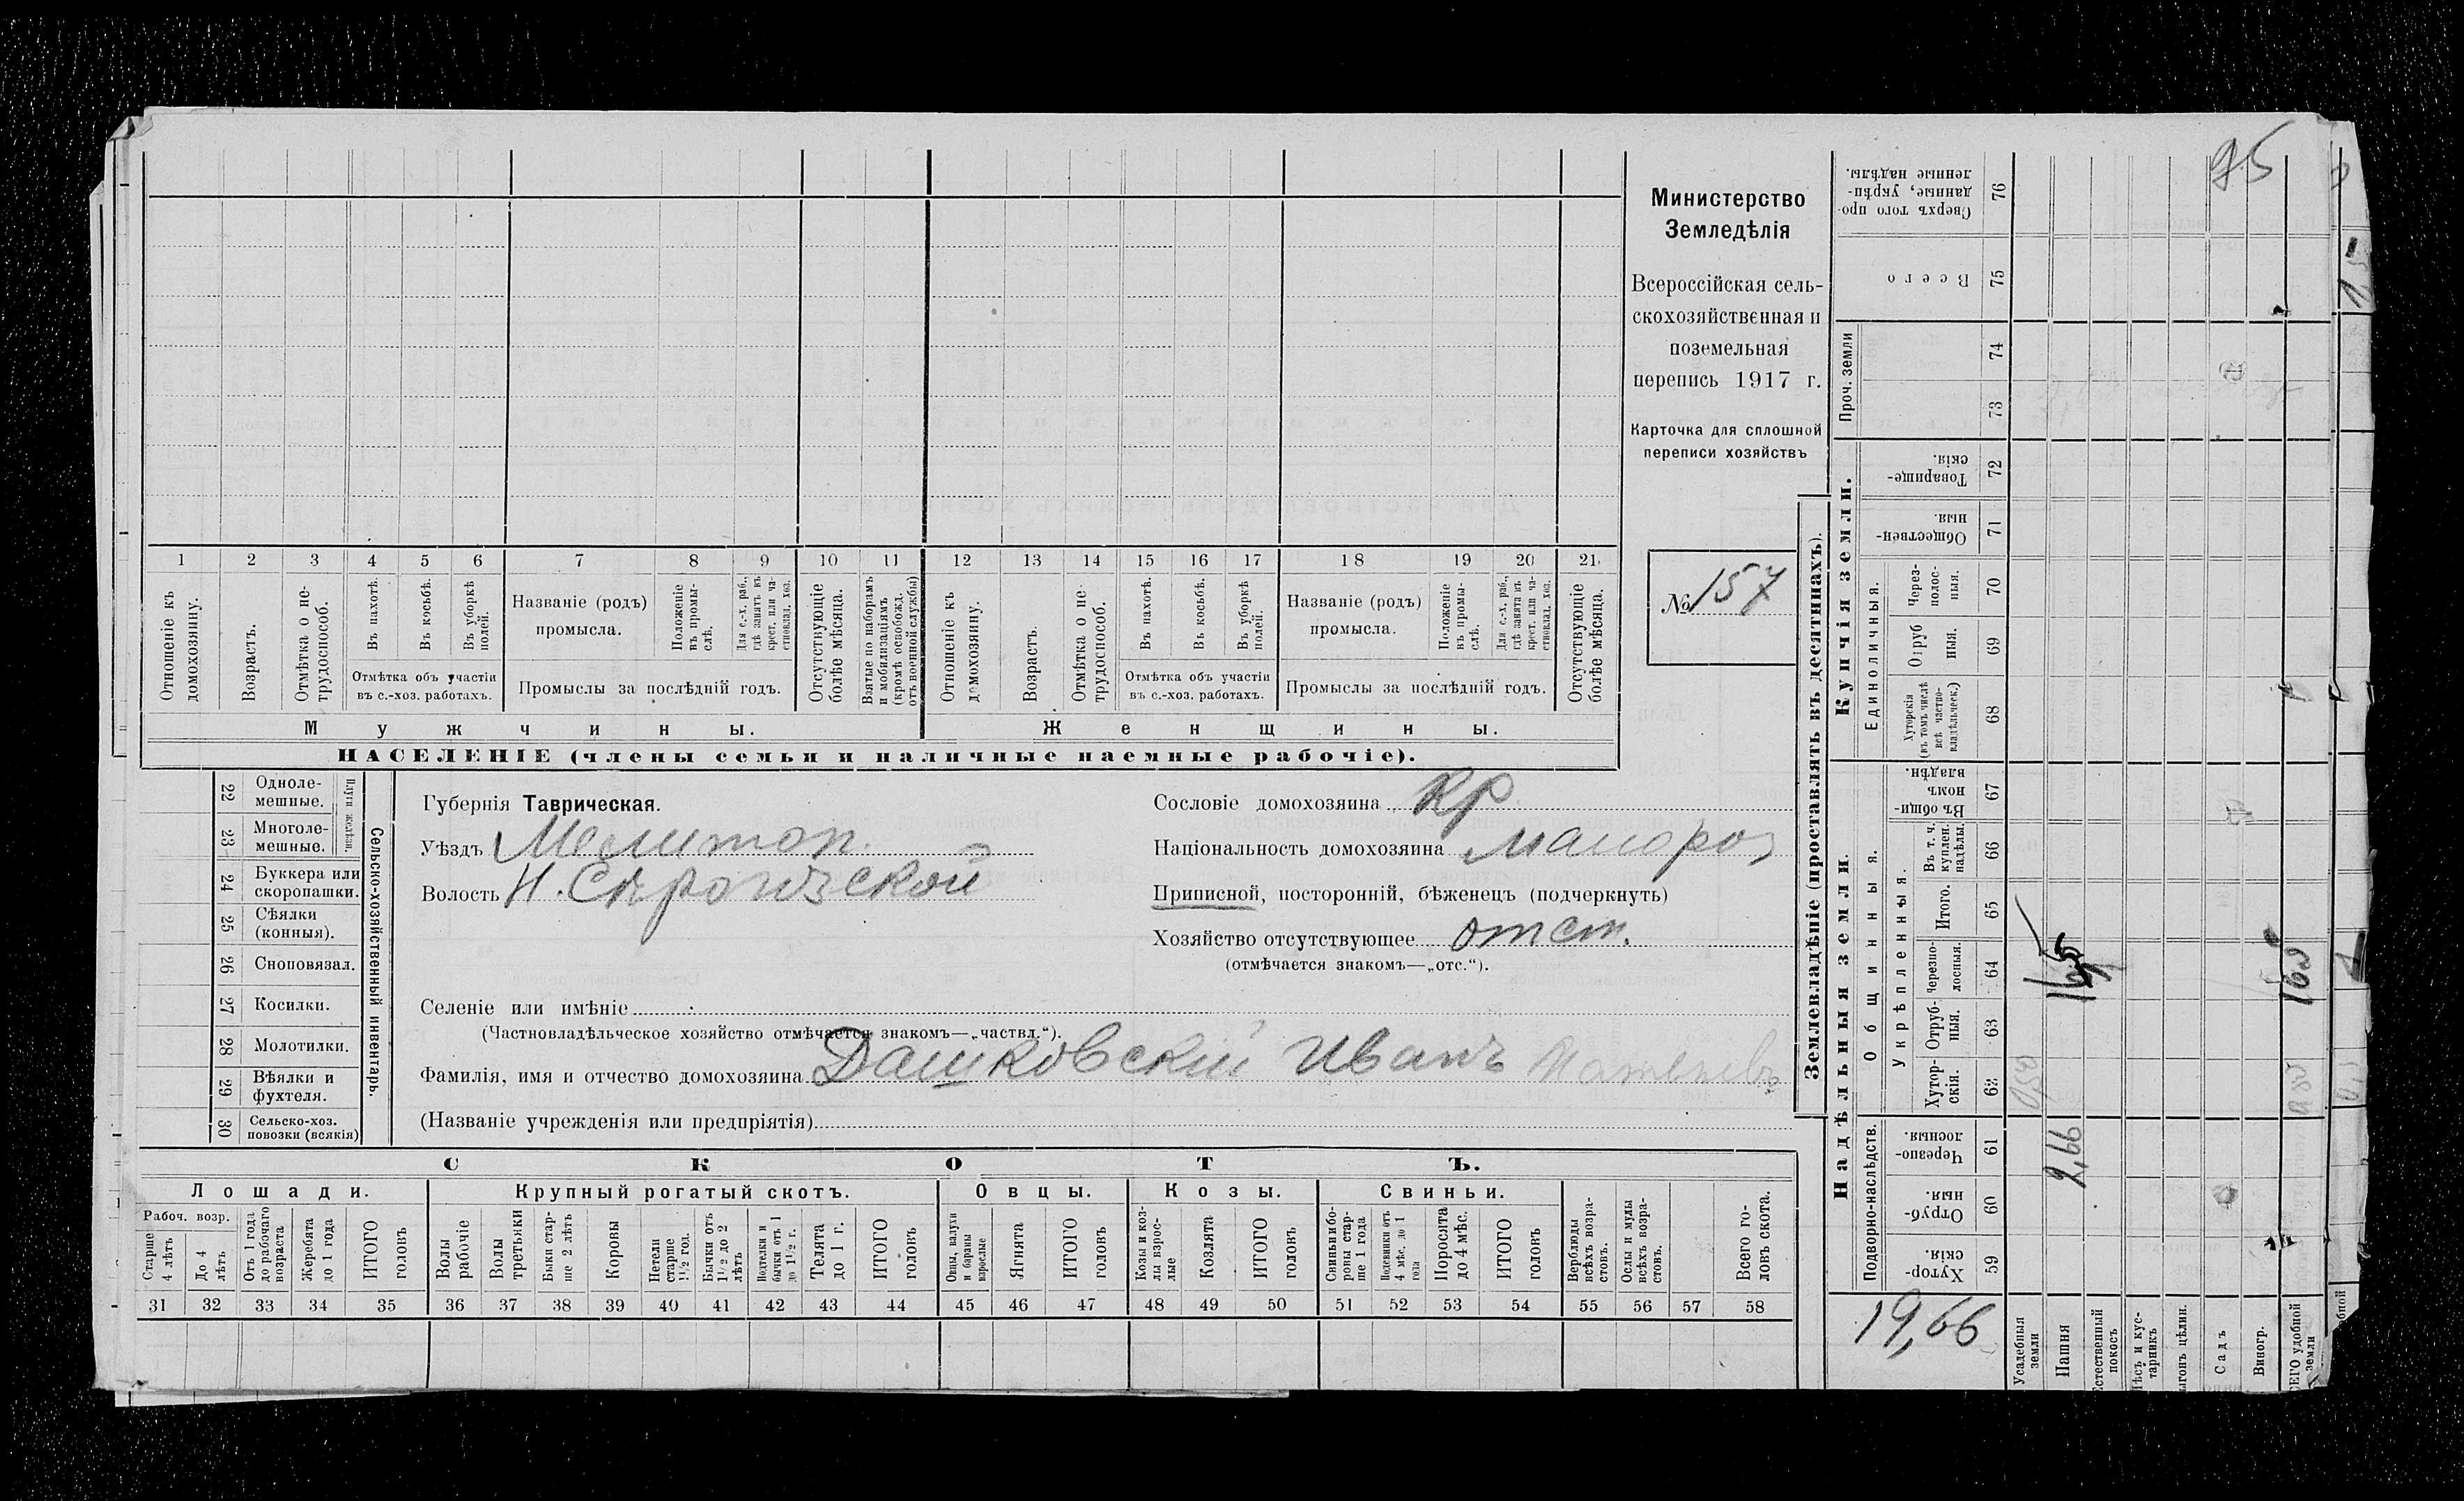 95
Министерство
Земледѣлія
Всероссійская сель-
скохозяйственная и
поземельная
перепись 1917 г.
Карточка для сплошной
переписи хозяйствъ
№ 157
1 2 3 4 5 6 7 8 9 10 11 12 13 14 15 16 17 18 19 20 21
Отношеніе къ домохозяину.
Возрастъ.
Отмѣтка о не-трудоспособ.
Въ пахотѣ.
Въ косьбѣ.
Въ уборкѣ полей.
Отмѣтка объ участіи
въ с.-хоз. работахъ.
Названіе (родъ)
промысла.
Положеніе въ промы-слѣ.
Для с.-х. раб., гдѣ занятъ въ крест. или ча-стновлад. хоз.
Промыслы за послѣдній годъ.
Отсутствующіе болѣе мѣсяца.
Взятые по наборамъ и мобилизаціямъ (кромѣ освобожд. отъ военной службы)
Отношеніе къ домохозяину.
Возрастъ.
Отмѣтка о не трудоспособ.
Въ пахотѣ.
Въ косьбѣ.
Въ уборкѣ полей.
Отмѣтка объ участіи
въ с.-хоз. работахъ.
Названіе (родъ)
промысла.
Положеніе въ промы-слѣ.
Для с.-х. раб., гдѣ занята въ крест. или ча-стновлад. хоз.
Промыслы за послѣдній годъ.
Отсутствующіе болѣе мѣсяца.
Мужчины.
Женщины.
НАСЕЛЕНІЕ (члены семьи и наличные наемные рабочіе).
22 Одноле-мешные.
23 Многоле-мешные.
Плуги желѣзн.
24 Буккера или скоропашки.
25 Сѣялки (конныя).
26 Сноповязал.
27 Косилки.
28 Молотилки.
29 Вѣялки и фухтеля.
30 Сельско-хоз. повозки (всякія)
Сельско-хозяйственный инвентарь.
Губернія Таврическая.
Уѣздъ Мелитоп.
Волость Н. Сѣрогозской
Сословіе домохозяина кр.
Національность домохозяина малорос
Приписной, посторонній, бѣженецъ (подчеркнуть)
Хозяйство отсутствующее отст.
(отмѣчается знакомъ—„отс.“).
Селеніе или имѣніе
(Частновладѣльческое хозяйство отмѣчается знакомъ—„частвл.“).
Фамилія, имя и отчество домохозяина Дашковскій Иванъ
(Названіе учрежденія или предпріятія)
СКОТЪ.
Лошади.
Крупный рогатый скотъ.
Овцы.
Козы.
Свиньи.
Рабоч. возр.
Старше 4 лѣтъ
До 4 лѣтъ
Отъ 1 года до рабочаго возраста
Жеребята до 1 года
ИТОГО головъ
Волы рабочіе
Волы третьяки
Быки стар-ше 2 лѣтъ
Коровы
Нетели старше 1 1/2 год.
Бычки отъ 1 1/2 до 2 лѣтъ
Подтелки и бычки отъ 1 до 1 1/2 г.
Телята до 1 г.
ИТОГО головъ
Овцы, валухи и бараны взрослые
Ягнята
ИТОГО головъ
Козы и коз-лы взрос-лые
Козлята
ИТОГО головъ
Свиньи и бо-ровы стар-ше 1 года
Подсвинки отъ 4 мѣс. до 1 года
Поросята до 4 мѣс.
ИТОГО головъ
Верблюды всѣхъ возра-стовъ.
Ослы и мулы всѣхъ возра-стовъ.
Всего го-ловъ скота.
31 32 33 34 35 36 37 38 39 40 41 42 43 44 45 46 47 48 49 50 51 52 53 54 55 56 57 58
Землевладѣніе (проставлять въ десятинахъ).
Купчія земли.
Надѣльныя земли.
Сверхъ того про-данные, укрѣп-ленные надѣлы. 76
Всего 75
Проч. земли
74
73
Товарище-скія. 72
Обществен-ныя. 71
Единоличныя.
Через-полос-ныя. 70
Отруб ныя. 69
Хуторскія (въ томъ числѣ всѣ частно-владѣльческ.) 68
Общинныя.
Въ общи-номъ владѣн. 67
Укрѣпленныя.
Въ т. ч. куплен. надѣлы. 66
Итого. 65
Черезпо-лосныя. 64
Отруб-ныя. 63
Хутор-скія. 62
Подворно-наслѣдств.
Черезпо-лосныя. 61
Отруб-ныя. 60
Хутор-скія. 59
2,66
19,66
Усадебныя земли
Пашня
Естественный покосъ
Лѣсъ и кус-тарникъ
ыгонъ цѣлин.
Садъ
Виногр.
СЕГО удобной земли
бной